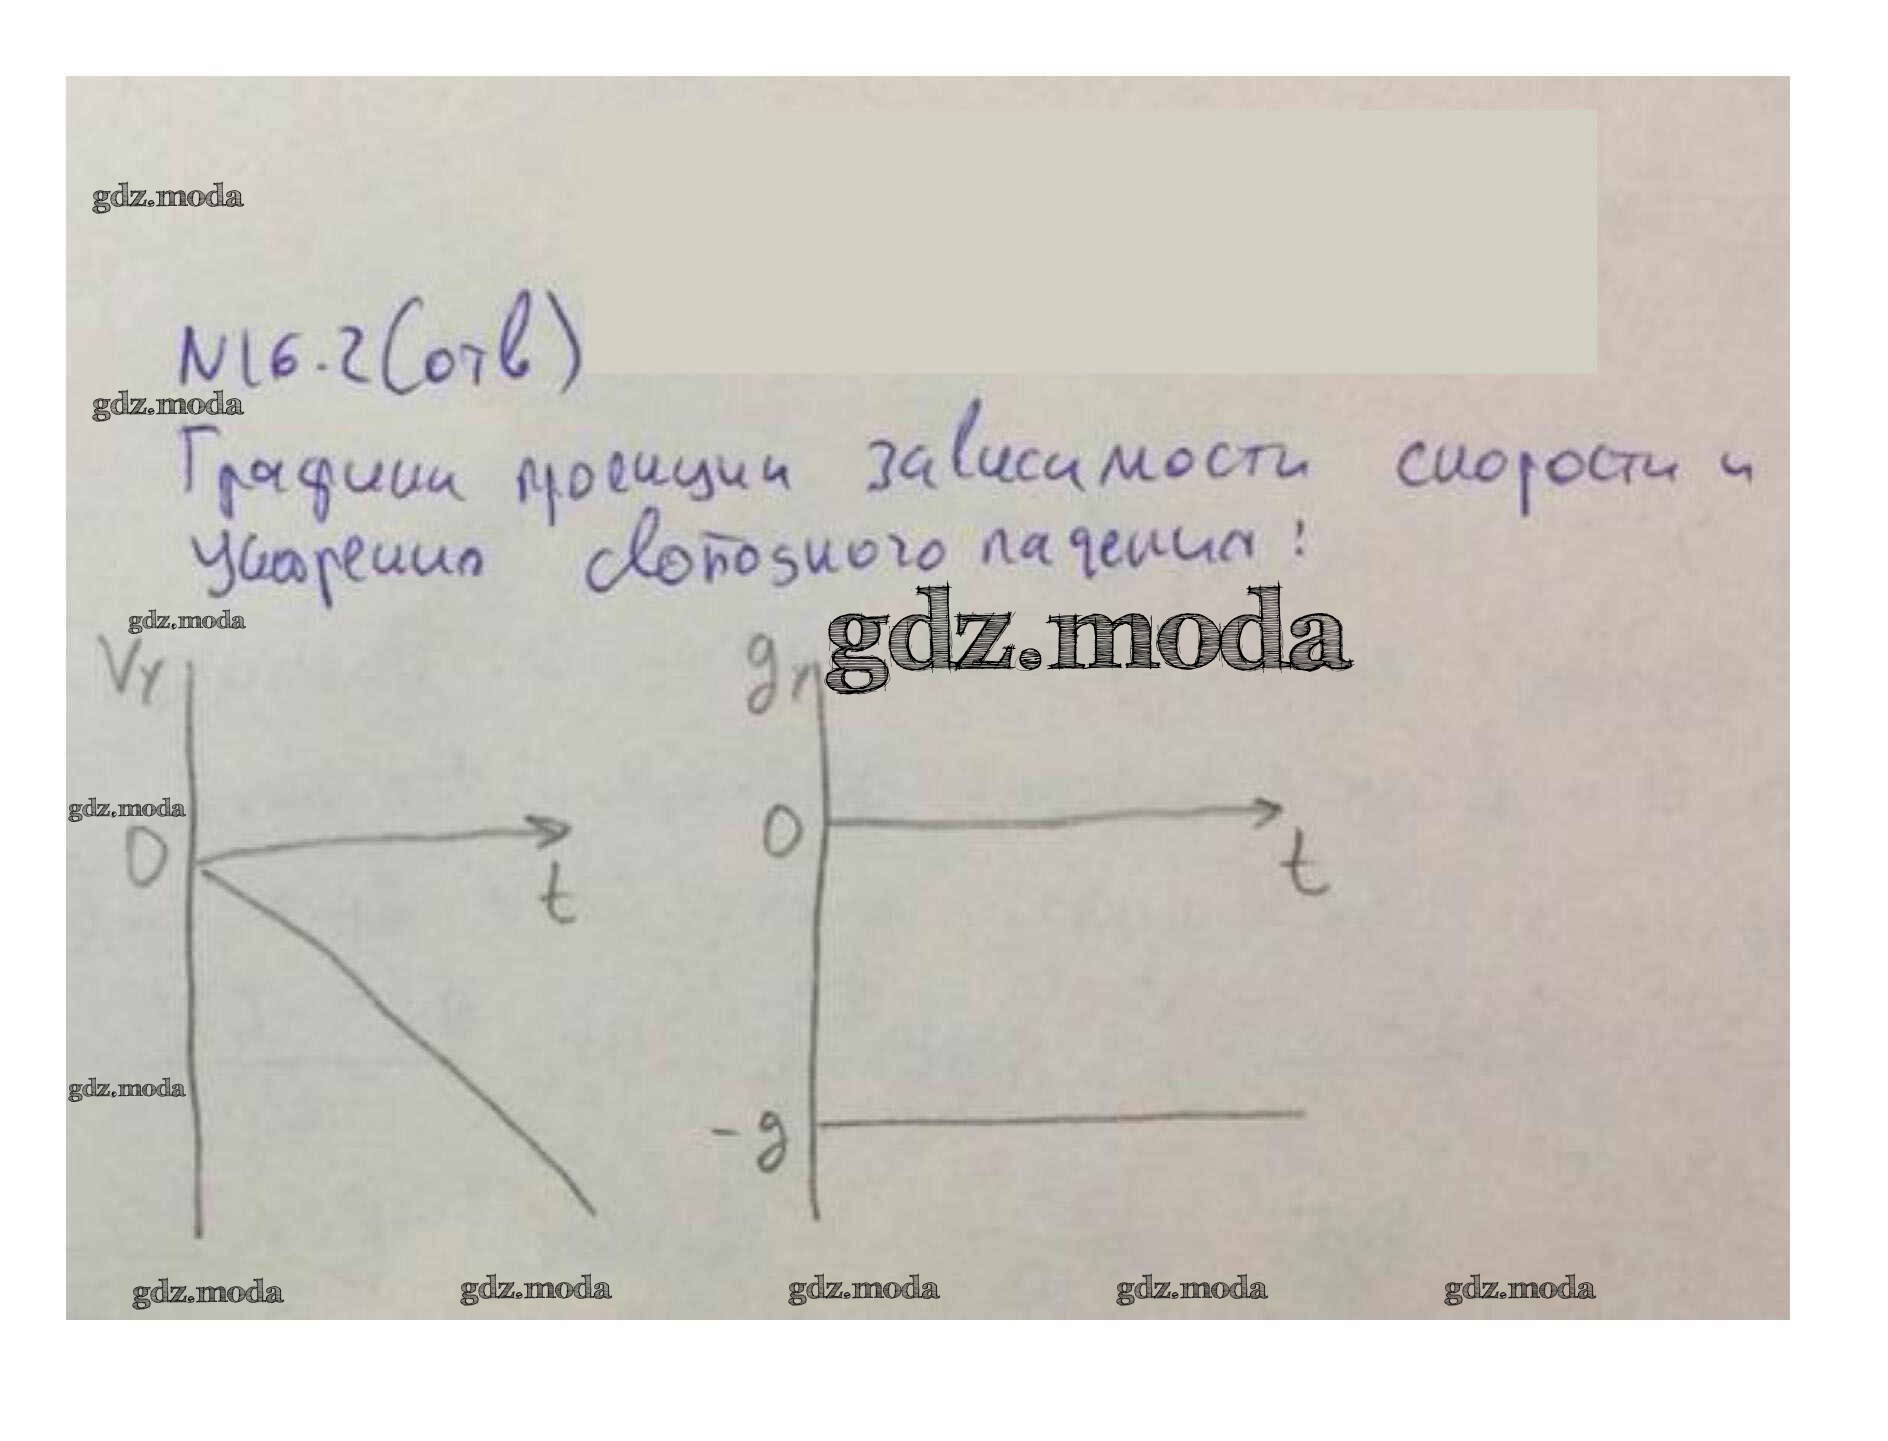 gdz.moda
N16.2(отв)
gdz.moda
Графики проекции зависимости скорости и
ускорения свободного падения:
gdz.moda
gdz.moda
Vy
gy
gdz.moda
0
t
0
t
gdz.moda
-g
gdz.moda gdz.moda gdz.moda gdz.moda gdz.moda